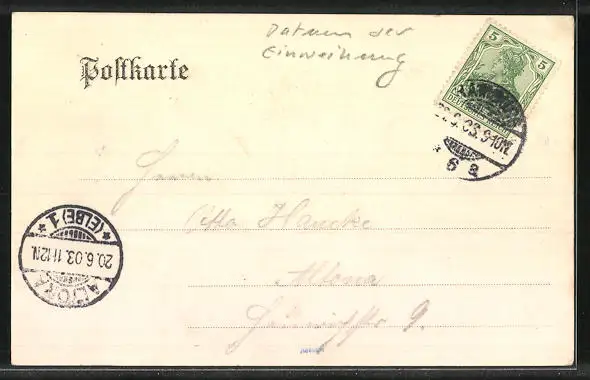 Datum der
Einweihung
Postkarte
5 5
DEUTSCHES REICH
HAMBURG
.6.03. 9-10N.
* 6 a
Herrn
Otto Hancke
Altona
9.
ALTONA
20.6.03. 11-12N.
* (ELBE) 1 *